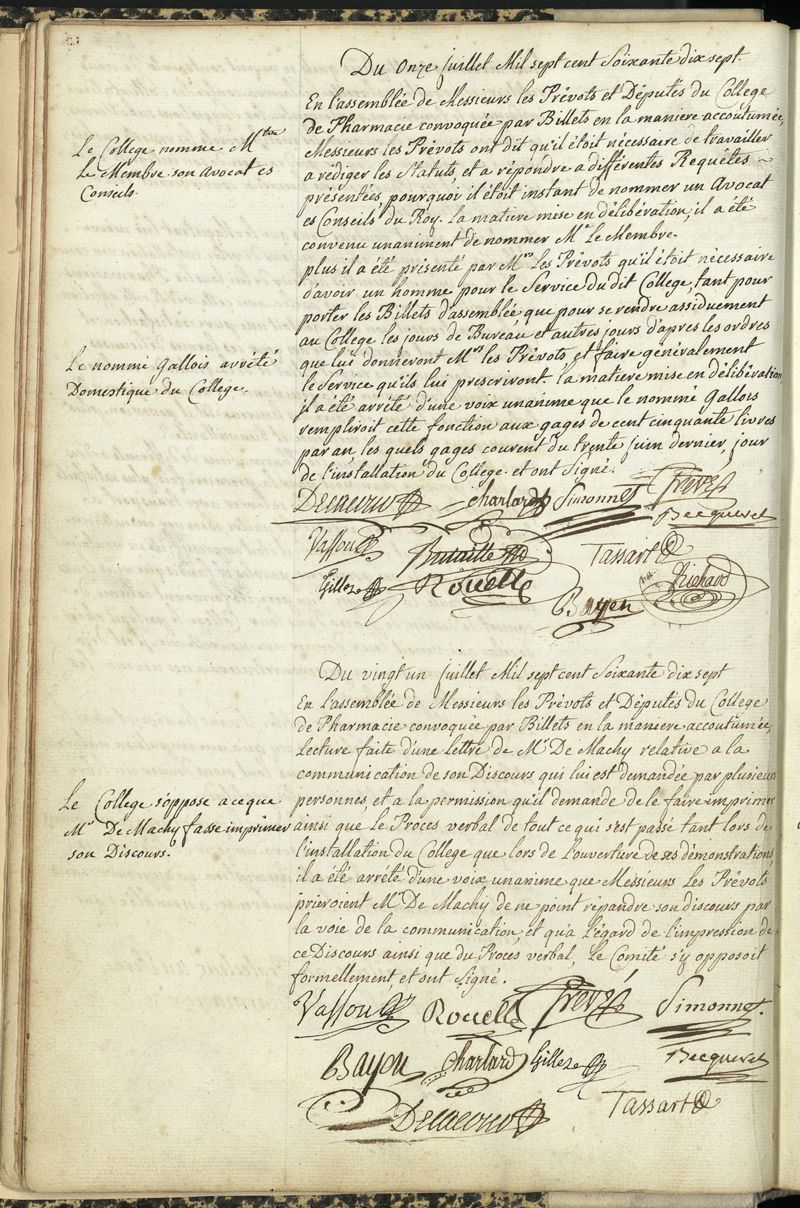 Du Onze Juillet Mil sept cent Soixante dix sept.
En l'assemblée de Messieurs les Prévots et Députés du College
de Pharmacie convoquée par Billets en la maniere accoutumée,
Le College nomme M.tre
Le Membre son Avocat es
Conseils.
Messieurs les Prévots ont dit qu'il étoit nécessaire de travailler
a rédiger les Statuts, et a répondre a différentes Requêtes
présentées, pourquoi il étoit instant de nommer un Avocat
es Conseils du Roy. la matiere mise en délibération, il a été
convenu unaniment de nommer Mr. Le Membre.
plus il a été présenté par Mrs. Les Prévots qu'il étoit nécessaire
d'avoir un homme pour le Service du dit College, tant pour
porter les Billets d'assemblée que pour se rendre assiduement
au College les jours de Bureau et autres jours d'apres les ordres
Le nommé Gallois arrêté
Domestique du College.
que lui donneront Mrs. les Prévots et faire genéralement
le Service qu'ils lui prescriront. la matiere mise en délibération
il a été arrété d'une voix unanime que le nommé Gallois
rempliroit cette fonction aux gages de cent cinquante livres
par an, les quels gages courent du trente Juin dernier, jour
de l'installation du College. et ont Signé.
Decaurio Charlard Simonnet Trevéz
Becqueret
Vassou Bataille Tassart
Gillez Rouelle Bayen Richard
Du vingt un Juillet Mil sept cent Soixante dix sept
En l'assemblée de Messieurs les Prévots et Députés du College
de Pharmacie convoquée par Billets en la maniere accoutumée,
Lecture faite d'une lettre de Mr. De Machy relative a la
communication de son Discours qui lui est demandée par plusieurs
Le College s'oppose a ce que
Mr. De Machy fasse imprimer
son Discours.
personnes, et a la permission qu'il demande de le faire imprimer
ainsi que le Procès verbal de tout ce qui s'est passé tant lors de
l'installation du College que lors de l'ouverture de ses démonstrations,
il a été arrété d'une voix unanime que Messieurs Les Prévots
prieroient Mr. De Machy de ne point répandre son discours par
la voie de la communication, et qu'a l'égard de l'impression de
ce Discours ainsi que du Procès verbal, Le Comité s'y opposoit
formellement, et ont Signé.
Vassou Rouelle Trevéz Simonnet.
Bayen Charlard Gillez Becqueret
Decaurio Tassart